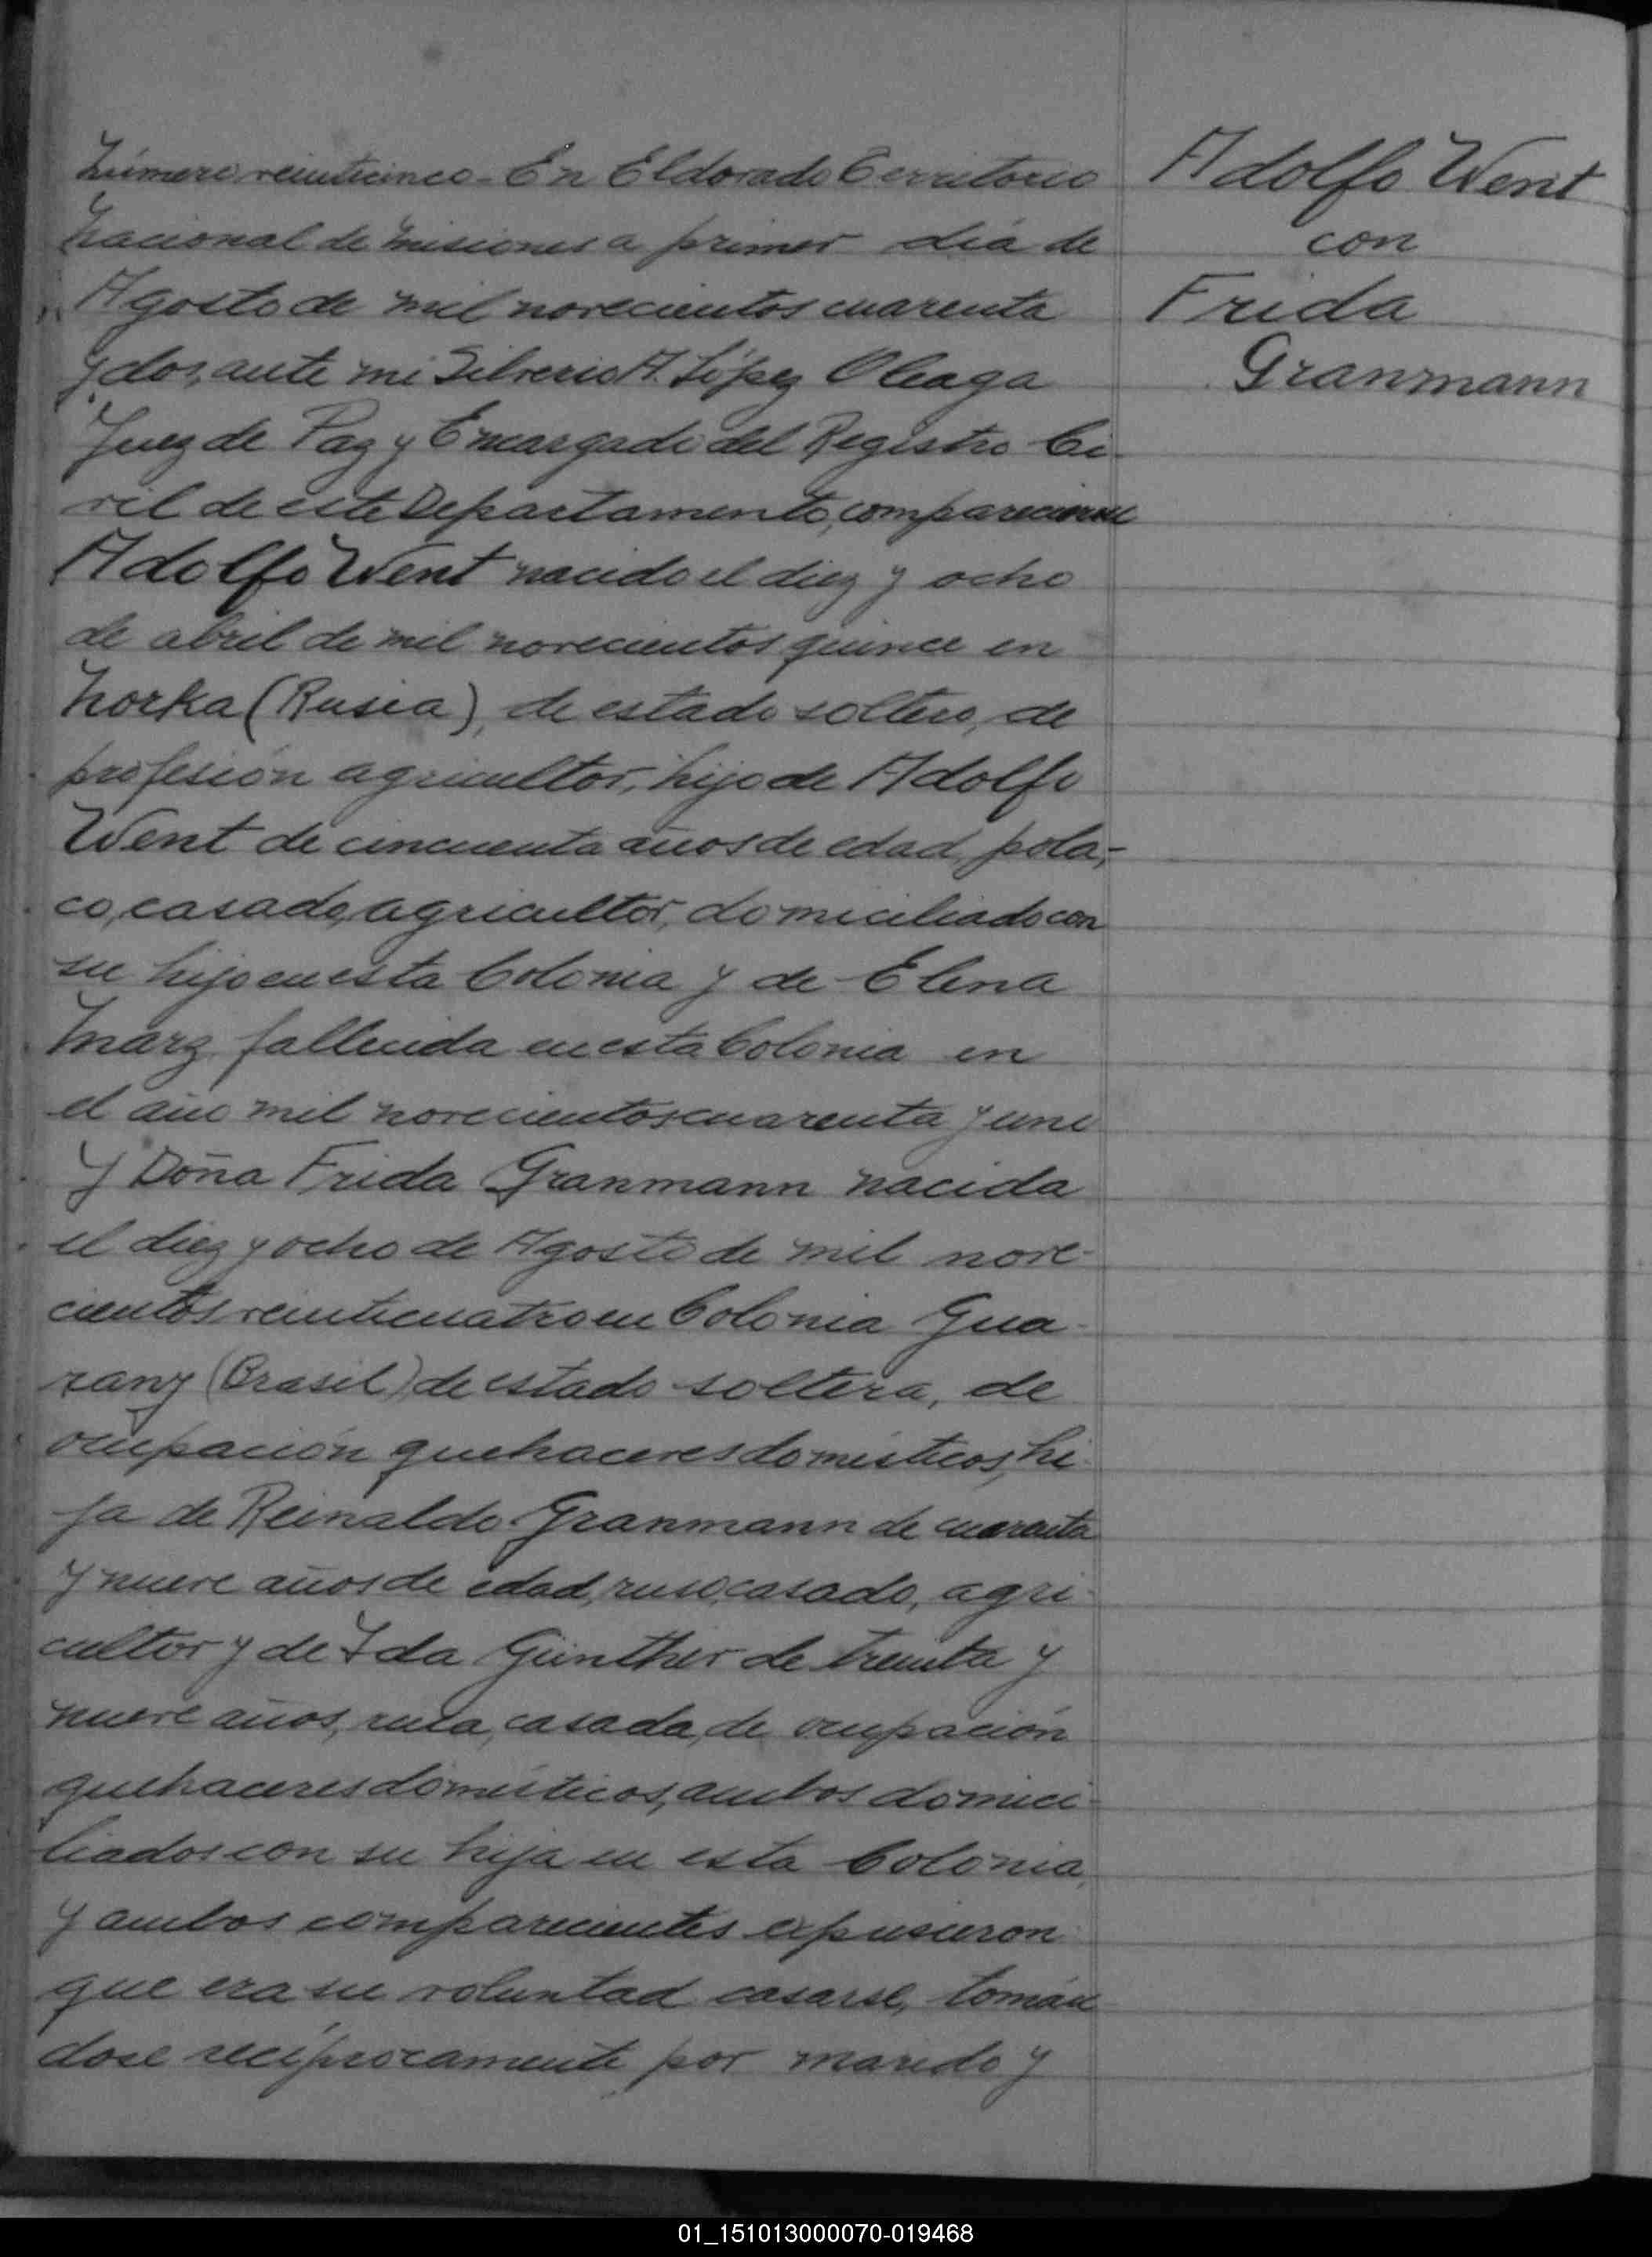 Número veinticinco - En Eldorado Territorio
Nacional de Misiones a primer día de
Agosto de mil novecientos cuarenta
y dos, ante mi Silverio A. López Oleaga
Juez de Paz y Encargado del Registro Ci-
vil de este Departamento, comparecieron
Adolfo Went nacido el diez y ocho
de abril de mil novecientos quince en
Norka (Rusia), de estado soltero, de
profesión agricultor, hijo de Adolfo
Went de cincuenta años de edad, pola-
co, casado, agricultor, domiciliado con
su hijo en esta Colonia y de Elena
Marz fallecida en esta Colonia en
el año mil novecientos cuarenta y uno
Y Doña Frida Granmann nacida
el diez y ocho de Agosto de mil nove-
cientos veinticuatro en Colonia Gua-
rany (Brasil) de estado soltera, de
ocupación quehaceres domésticos, hi-
ja de Reinaldo Granmann de cuarenta
y nueve años de edad, ruso, casado, agri-
cultor y de Ida Günther de treinta y
nueve años, rusa, casada, de ocupación
quehaceres domésticos, ambos domici-
liados con su hija en esta Colonia,
y ambos comparecientes expusieron
que era su voluntad casarse, tomán
dose recíprocamente por marido y
Adolfo Went
con
Frida
Granmann
01_151013000070-019468